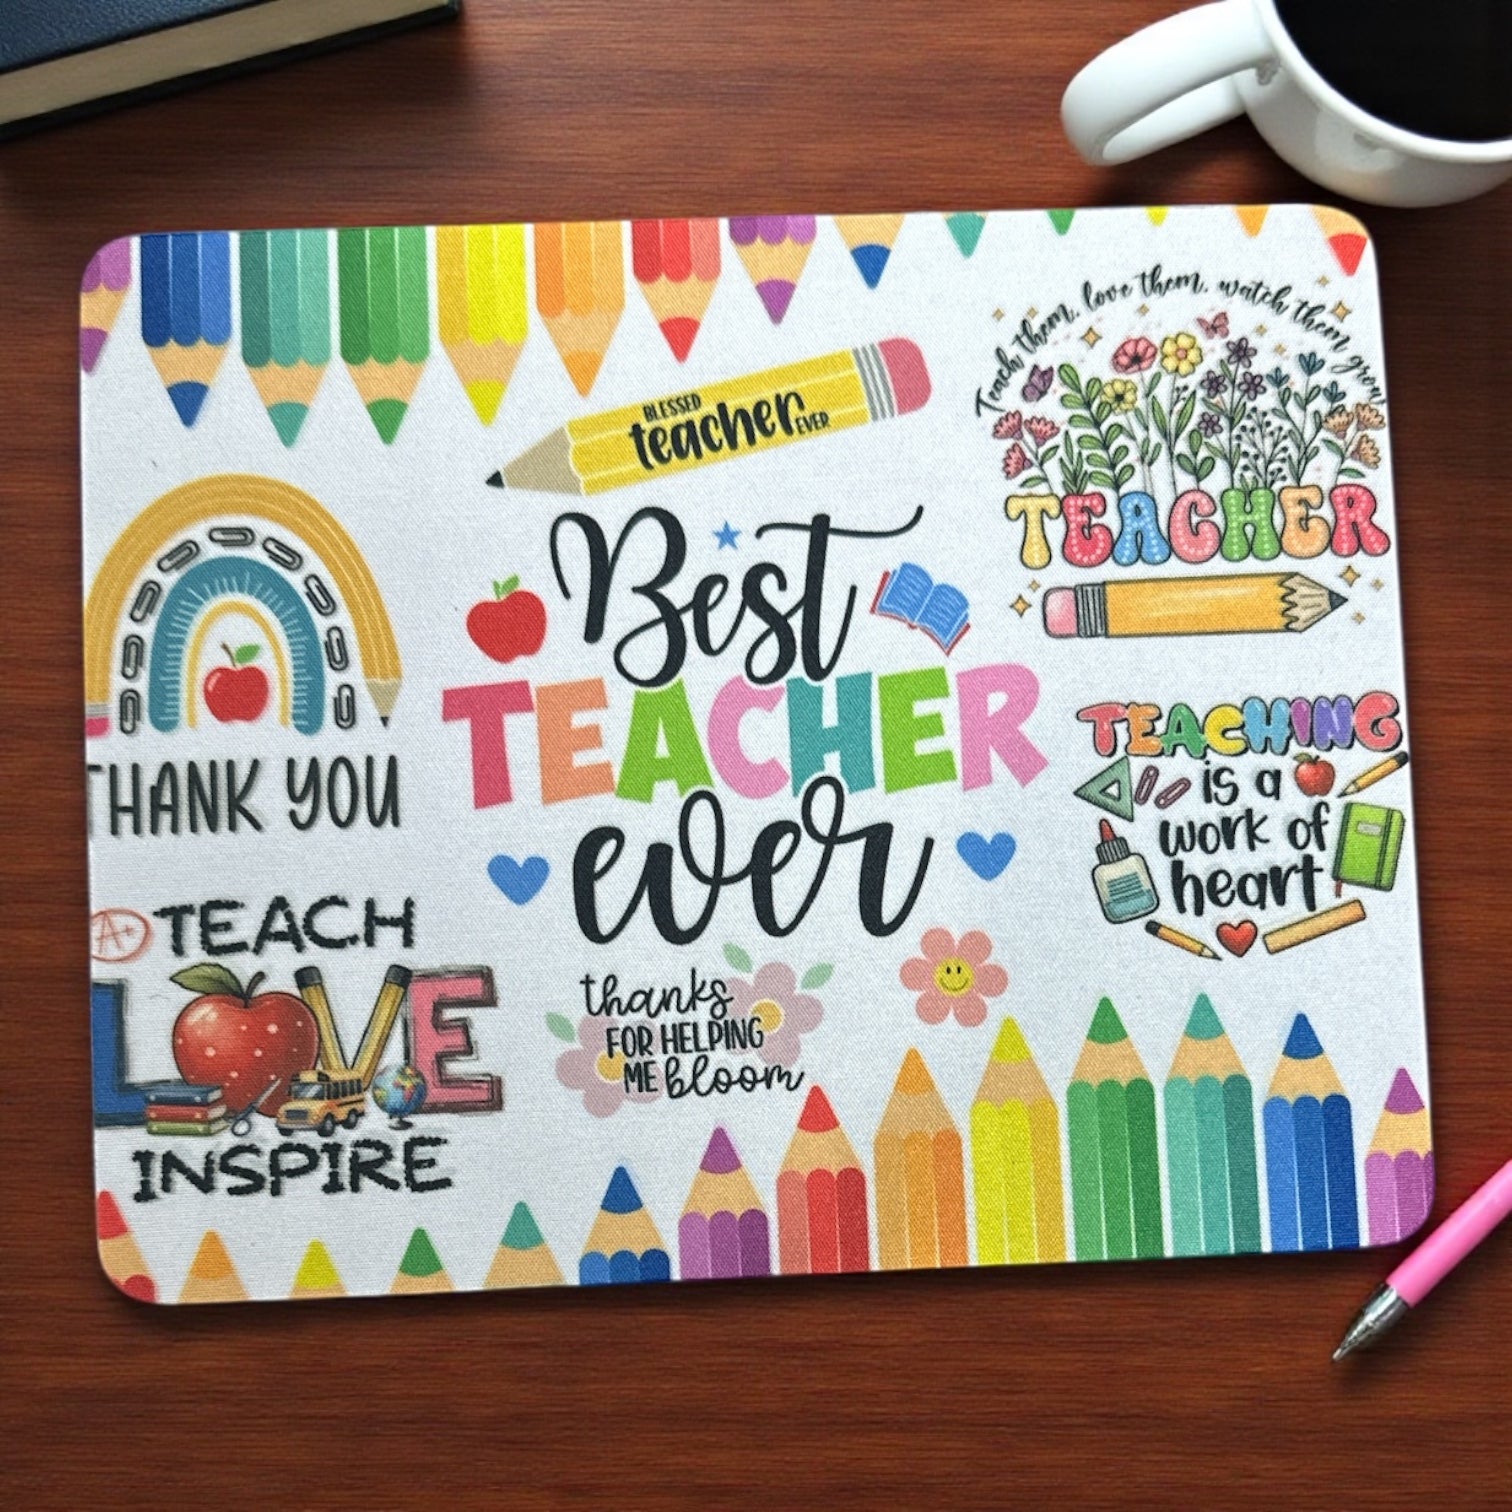 BLESSED
teacher
EVER
Teach them, love them, watch them grow
TEACHER
Best
TEACHER
ever
THANK YOU
TEACHING
is a
work of
heart
A+
TEACH
LOVE
INSPIRE
thanks
FOR HELPING
ME bloom